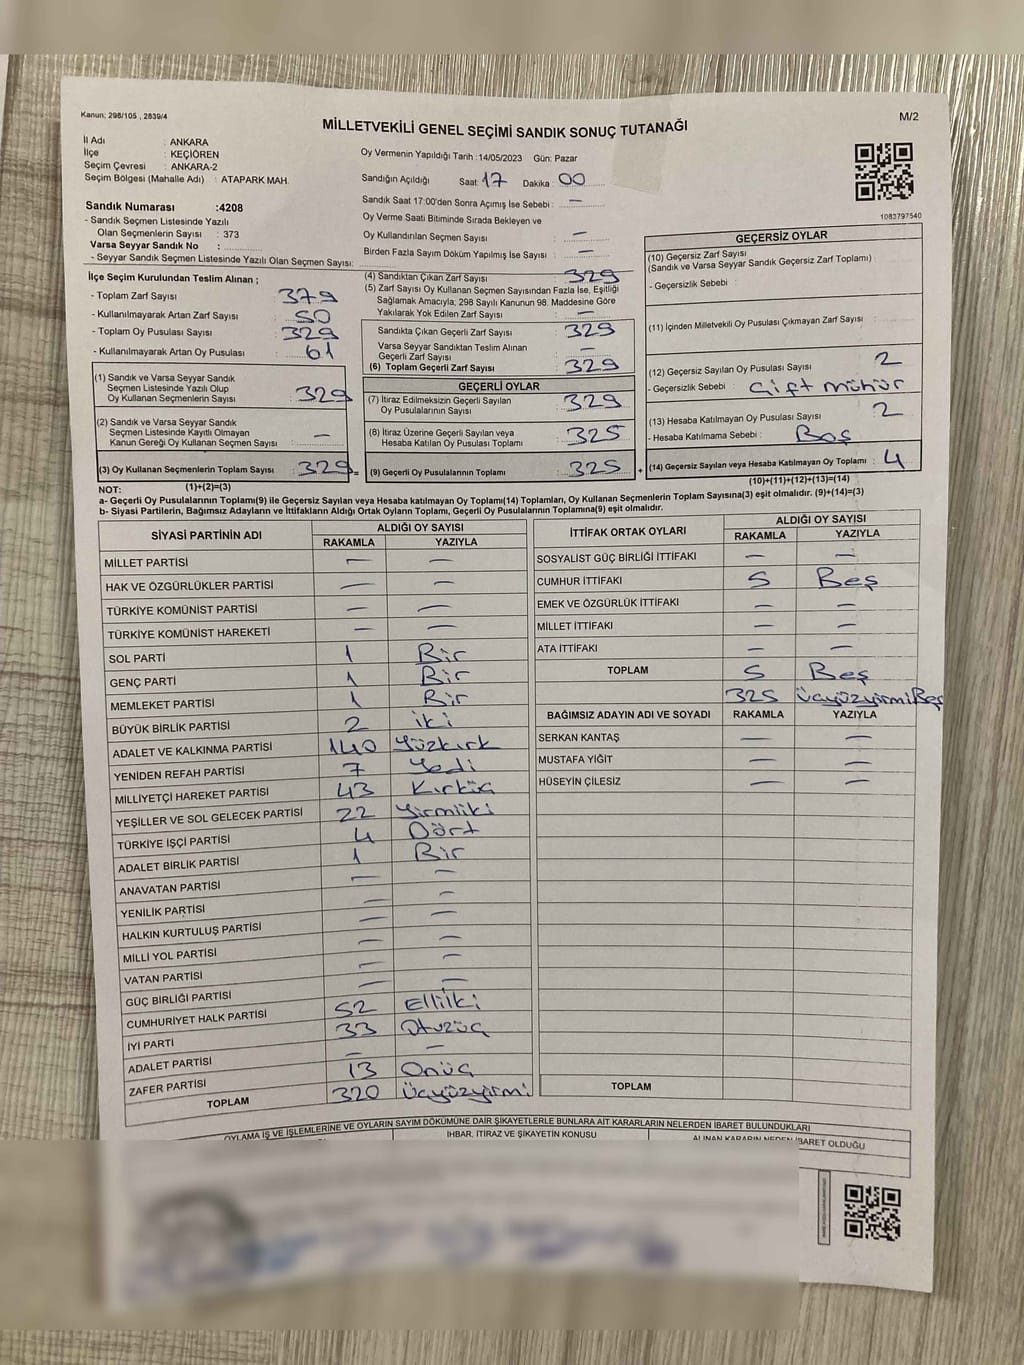 Kanun: 298/105 , 2839/4
MİLLETVEKİLİ GENEL SEÇİMİ SANDIK SONUÇ TUTANAĞI
M/2
İl Adı : ANKARA
İlçe : KEÇİÖREN
Seçim Çevresi : ANKARA-2
Seçim Bölgesi (Mahalle Adı) : ATAPARK MAH.
Sandık Numarası :4208
- Sandık Seçmen Listesinde Yazılı
Olan Seçmenlerin Sayısı : 373
Varsa Seyyar Sandık No :
- Seyyar Sandık Seçmen Listesinde Yazılı Olan Seçmen Sayısı:
Oy Vermenin Yapıldığı Tarih :14/05/2023 Gün: Pazar
Sandığın Açıldığı Saat: 17 Dakika : 00
Sandık Saat 17:00'den Sonra Açımış İse Sebebi : —
Oy Verme Saati Bitiminde Sırada Bekleyen ve
Oy Kullandırılan Seçmen Sayısı : —
Birden Fazla Sayım Döküm Yapılmış İse Sayısı : —
1083797540
İlçe Seçim Kurulundan Teslim Alınan ;
- Toplam Zarf Sayısı : 379
- Kullanılmayarak Artan Zarf Sayısı : 50
- Toplam Oy Pusulası Sayısı : 329
- Kullanılmayarak Artan Oy Pusulası : 61
(1) Sandık ve Varsa Seyyar Sandık
Seçmen Listesinde Yazılı Olup
Oy Kullanan Seçmenlerin Sayısı : 329
(2) Sandık ve Varsa Seyyar Sandık
Seçmen Listesinde Kayıtlı Olmayan
Kanun Gereği Oy Kullanan Seçmen Sayısı : —
(3) Oy Kullanan Seçmenlerin Toplam Sayısı : 329 =
(1)+(2)=(3)
(4) Sandıktan Çıkan Zarf Sayısı : 329
(5) Zarf Sayısı Oy Kullanan Seçmen Sayısından Fazla İse, Eşitliği
Sağlamak Amacıyla; 298 Sayılı Kanunun 98. Maddesine Göre
Yakılarak Yok Edilen Zarf Sayısı : —
Sandıkta Çıkan Geçerli Zarf Sayısı : 329
Varsa Seyyar Sandıktan Teslim Alınan
Geçerli Zarf Sayısı : —
(6) Toplam Geçerli Zarf Sayısı : 329
GEÇERLİ OYLAR
(7) İtiraz Edilmeksizin Geçerli Sayılan
Oy Pusulalarının Sayısı : 329
(8) İtiraz Üzerine Geçerli Sayılan veya
Hesaba Katılan Oy Pusulası Toplamı : 325
(9) Geçerli Oy Pusulalarının Toplamı : 325 +
GEÇERSİZ OYLAR
(10) Geçersiz Zarf Sayısı
(Sandık ve Varsa Seyyar Sandık Geçersiz Zarf Toplamı) :
- Geçersizlik Sebebi :
(11) İçinden Milletvekili Oy Pusulası Çıkmayan Zarf Sayısı :
(12) Geçersiz Sayılan Oy Pusulası Sayısı : 2
- Geçersizlik Sebebi : Çift mühür
(13) Hesaba Katılmayan Oy Pusulası Sayısı : 2
- Hesaba Katılmama Sebebi : Boş
(14) Geçersiz Sayılan veya Hesaba Katılmayan Oy Toplamı : 4
(10)+(11)+(12)+(13)=(14)
NOT:
a- Geçerli Oy Pusulalarının Toplamı(9) ile Geçersiz Sayılan veya Hesaba katılmayan Oy Toplamı(14) Toplamları, Oy Kullanan Seçmenlerin Toplam Sayısına(3) eşit olmalıdır. (9)+(14)=(3)
b- Siyasi Partilerin, Bağımsız Adayların ve İttifakların Aldığı Ortak Oyların Toplamı, Geçerli Oy Pusulalarının Toplamına(9) eşit olmalıdır.
SİYASİ PARTİNİN ADI ALDIĞI OY SAYISI
RAKAMLA YAZIYLA
MİLLET PARTİSİ — —
HAK VE ÖZGÜRLÜKLER PARTİSİ — —
TÜRKİYE KOMÜNİST PARTİSİ — —
TÜRKİYE KOMÜNİST HAREKETİ — —
SOL PARTİ 1 Bir
GENÇ PARTİ 1 Bir
MEMLEKET PARTİSİ 1 Bir
BÜYÜK BİRLİK PARTİSİ 2 iki
ADALET VE KALKINMA PARTİSİ 140 Yüzkırk
YENİDEN REFAH PARTİSİ 7 Yedi
MİLLİYETÇİ HAREKET PARTİSİ 43 Kırküç
YEŞİLLER VE SOL GELECEK PARTİSİ 22 Yirmiiki
TÜRKİYE İŞÇİ PARTİSİ 4 Dört
ADALET BİRLİK PARTİSİ 1 Bir
ANAVATAN PARTİSİ — —
YENİLİK PARTİSİ — —
HALKIN KURTULUŞ PARTİSİ — —
MİLLİ YOL PARTİSİ — —
VATAN PARTİSİ — —
GÜÇ BİRLİĞİ PARTİSİ — —
CUMHURİYET HALK PARTİSİ 52 Elliiki
İYİ PARTİ 33 Otuzüç
ADALET PARTİSİ — —
ZAFER PARTİSİ 13 Onüç
TOPLAM 320 Üçyüzyirmi
İTTİFAK ORTAK OYLARI ALDIĞI OY SAYISI
RAKAMLA YAZIYLA
SOSYALİST GÜÇ BİRLİĞİ İTTİFAKI — —
CUMHUR İTTİFAKI 5 Beş
EMEK VE ÖZGÜRLÜK İTTİFAKI — —
MİLLET İTTİFAKI — —
ATA İTTİFAKI — —
TOPLAM 5 Beş
325 ÜçyüzyirmiBeş
BAĞIMSIZ ADAYIN ADI VE SOYADI RAKAMLA YAZIYLA
SERKAN KANTAŞ — —
MUSTAFA YİĞİT — —
HÜSEYİN ÇİLESİZ — —
TOPLAM
OYLAMA İŞ VE İŞLEMLERİNE VE OYLARIN SAYIM DÖKÜMÜNE DAİR ŞİKAYETLERLE BUNLARA AİT KARARLARIN NELERDEN İBARET BULUNDUKLARI
İHBAR, İTİRAZ VE ŞİKAYETİN KONUSU
ALINAN KARARIN NEDEN İBARET OLDUĞU